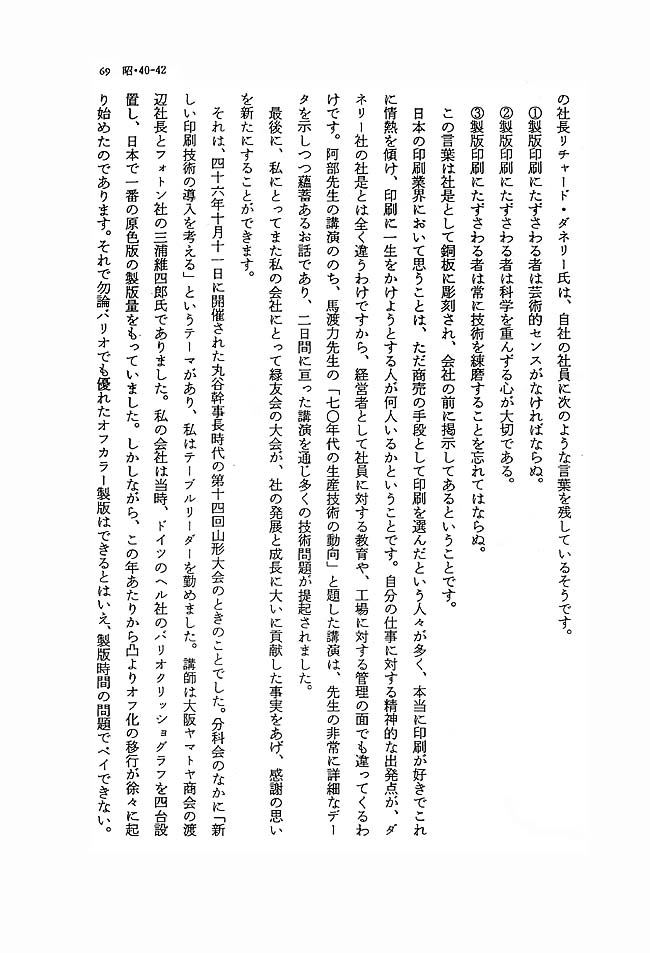 69　昭・40-42
の社長リチャード・ダネリー氏は、自社の社員に次のような言葉を残しているそうです。
①製版印刷にたずさわる者は芸術的センスがなければならぬ。
②製版印刷にたずさわる者は科学を重んずる心が大切である。
③製版印刷にたずさわる者は常に技術を練磨することを忘れてはならぬ。
この言葉は社是として銅板に彫刻され、会社の前に掲示してあるということです。
日本の印刷業界において思うことは、ただ商売の手段として印刷を選んだという人々が多く、本当に印刷が好きでこれ
に情熱を傾け、印刷に一生をかけようとする人が何人いるかということです。自分の仕事に対する精神的な出発点が、ダ
ネリー社の社是とは全く違うわけですから、経営者として社員に対する教育や、工場に対する管理の面でも違ってくるわ
けです。阿部先生の講演ののち、馬渡力先生の「七〇年代の生産技術の動向」と題した講演は、先生の非常に詳細なデー
タを示しつつ蘊蓄あるお話であり、二日間に亘った講演を通じ多くの技術問題が提起されました。
最後に、私にとってまた私の会社にとって緑友会の大会が、社の発展と成長に大いに貢献した事実をあげ、感謝の思い
を新たにすることができます。
それは、四十六年十月十一日に開催された丸谷幹事長時代の第十四回山形大会のときのことでした。分科会のなかに「新
しい印刷技術の導入を考える」というテーマがあり、私はテーブルリーダーを勤めました。講師は大阪ヤマトヤ商会の渡
辺社長とフォトン社の三浦維四郎氏でありました。私の会社は当時、ドイツのヘル社のバリオクリッショグラフを四台設
置し、日本で一番の原色版の製版量をもっていました。しかしながら、この年あたりから凸よりオフ化の移行が徐々に起
り始めたのであります。それで勿論バリオでも優れたオフカラー製版はできるとはいえ、製版時間の問題でペイできない。